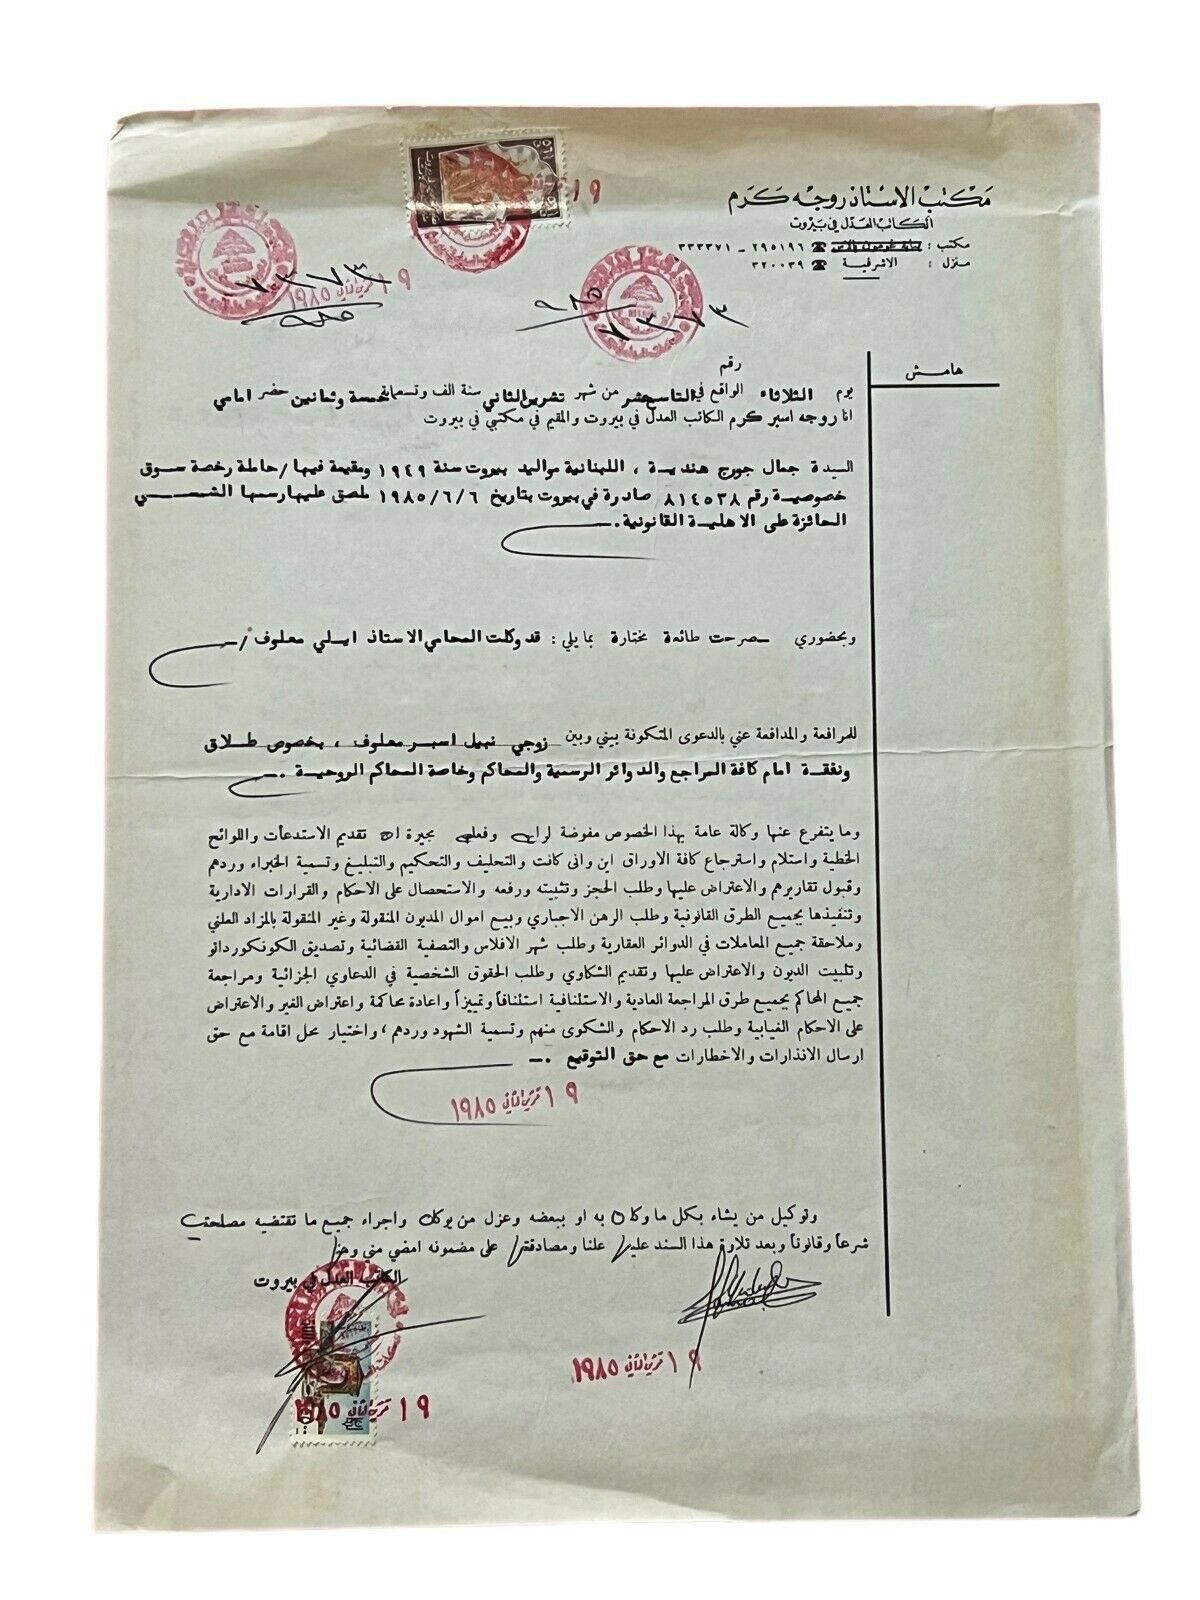 مكتب الاستاذ روجه كرم
الكاتب العدل في بيروت
مكتب : ☎ ٢٩٥١٩٦ - ٣٣٣٣٧١
منزل : الاشرفية ☎ ٣٢٠٠٣٩
١٩
١٩ تشرين الثاني ١٩٨٥
٧٣٧٣
٩٨٥
٧٣٧٣
هامش
رقم
يوم الثلاثاء الواقع في التاسع عشر من شهر تشرين الثاني سنة الف وتسعماية خمسة وثمانين حضر امامي
انا روجه اسبر كرم الكاتب العدل في بيروت والمقيم في مكتبي في بيروت
السيدة جمال جورج هندية ، اللبنانية مواليد بيروت سنة ١٩٤٩ ومقيمة فيها/حاملة رخصة سوق
خصوصية رقم ٨١٤٥٣٨ صادرة في بيروت بتاريخ ١٩٨٥/٦/٦ ملصق عليها رسمها الشمسي
الحائزة على الاهلية القانونية .-
وبحضوري صرحت طائعة مختارة بما يلي : قد وكلت المحامي الاستاذ ايلي معلوف /-
للمرافعة والمدافعة عني بالدعوى المتكونة بيني وبين زوجي نبيل اسبر معلوف ، بخصوص طلاق
ونفقة امام كافة المراجع والدوائر الرسمية والمحاكم وخاصة المحاكم الروحية .-
وما يتفرع عنها وكالة عامة بهذا الخصوص مفوضة لرأيه وفعله بجيرة له تقديم الاستدعآت واللوائح
الخطية واستلام واسترجاع كافة الاوراق اين وانى كانت والتحليف والتحكيم والتبليغ وتسمية الخبراء وردهم
وقبول تقاريرهم والاعتراض عليها وطلب الحجز وتثبيته ورفعه والاستحصال على الاحكام والقرارات الادارية
وتنفيذها بجميع الطرق القانونية وطلب الرهن الاجباري وبيع اموال المديون المنقولة وغير المنقولة بالمزاد العلني
وملاحقة جميع المعاملات في الدوائر العقارية وطلب شهر الافلاس والتصفية القضائية وتصديق الكونكورداتو
وتثبيت الديون والاعتراض عليها وتقديم الشكاوي وطلب الحقوق الشخصية في الدعاوي الجزائية ومراجعة
جميع المحاكم بجميع طرق المراجعة العادية والاستئنافية استئنافاً وتمييزاً واعادة محاكمة واعتراض الغير والاعتراض
على الاحكام الغيابية وطلب رد الاحكام والشكوى منهم وتسمية الشهود وردهم ، واختيار محل اقامة مع حق
ارسال الانذارات والاخطارات مع حق التوقيع .-
١٩ تشرين الثاني ١٩٨٥
وتوكيل من يشاء بكل ما وكل به او ببعضه وعزل من يوكل واجراء جميع ما تقتضيه مصلحتي
شرعاً وقانوناً وبعد تلاوة هذا السند عليها علنا ومصادقتها على مضمونه امضي مني ومنها
الكاتب العدل في بيروت
١٩ تشرين الثاني ١٩٨٥
١٩ تشرين الثاني ١٩٨٥